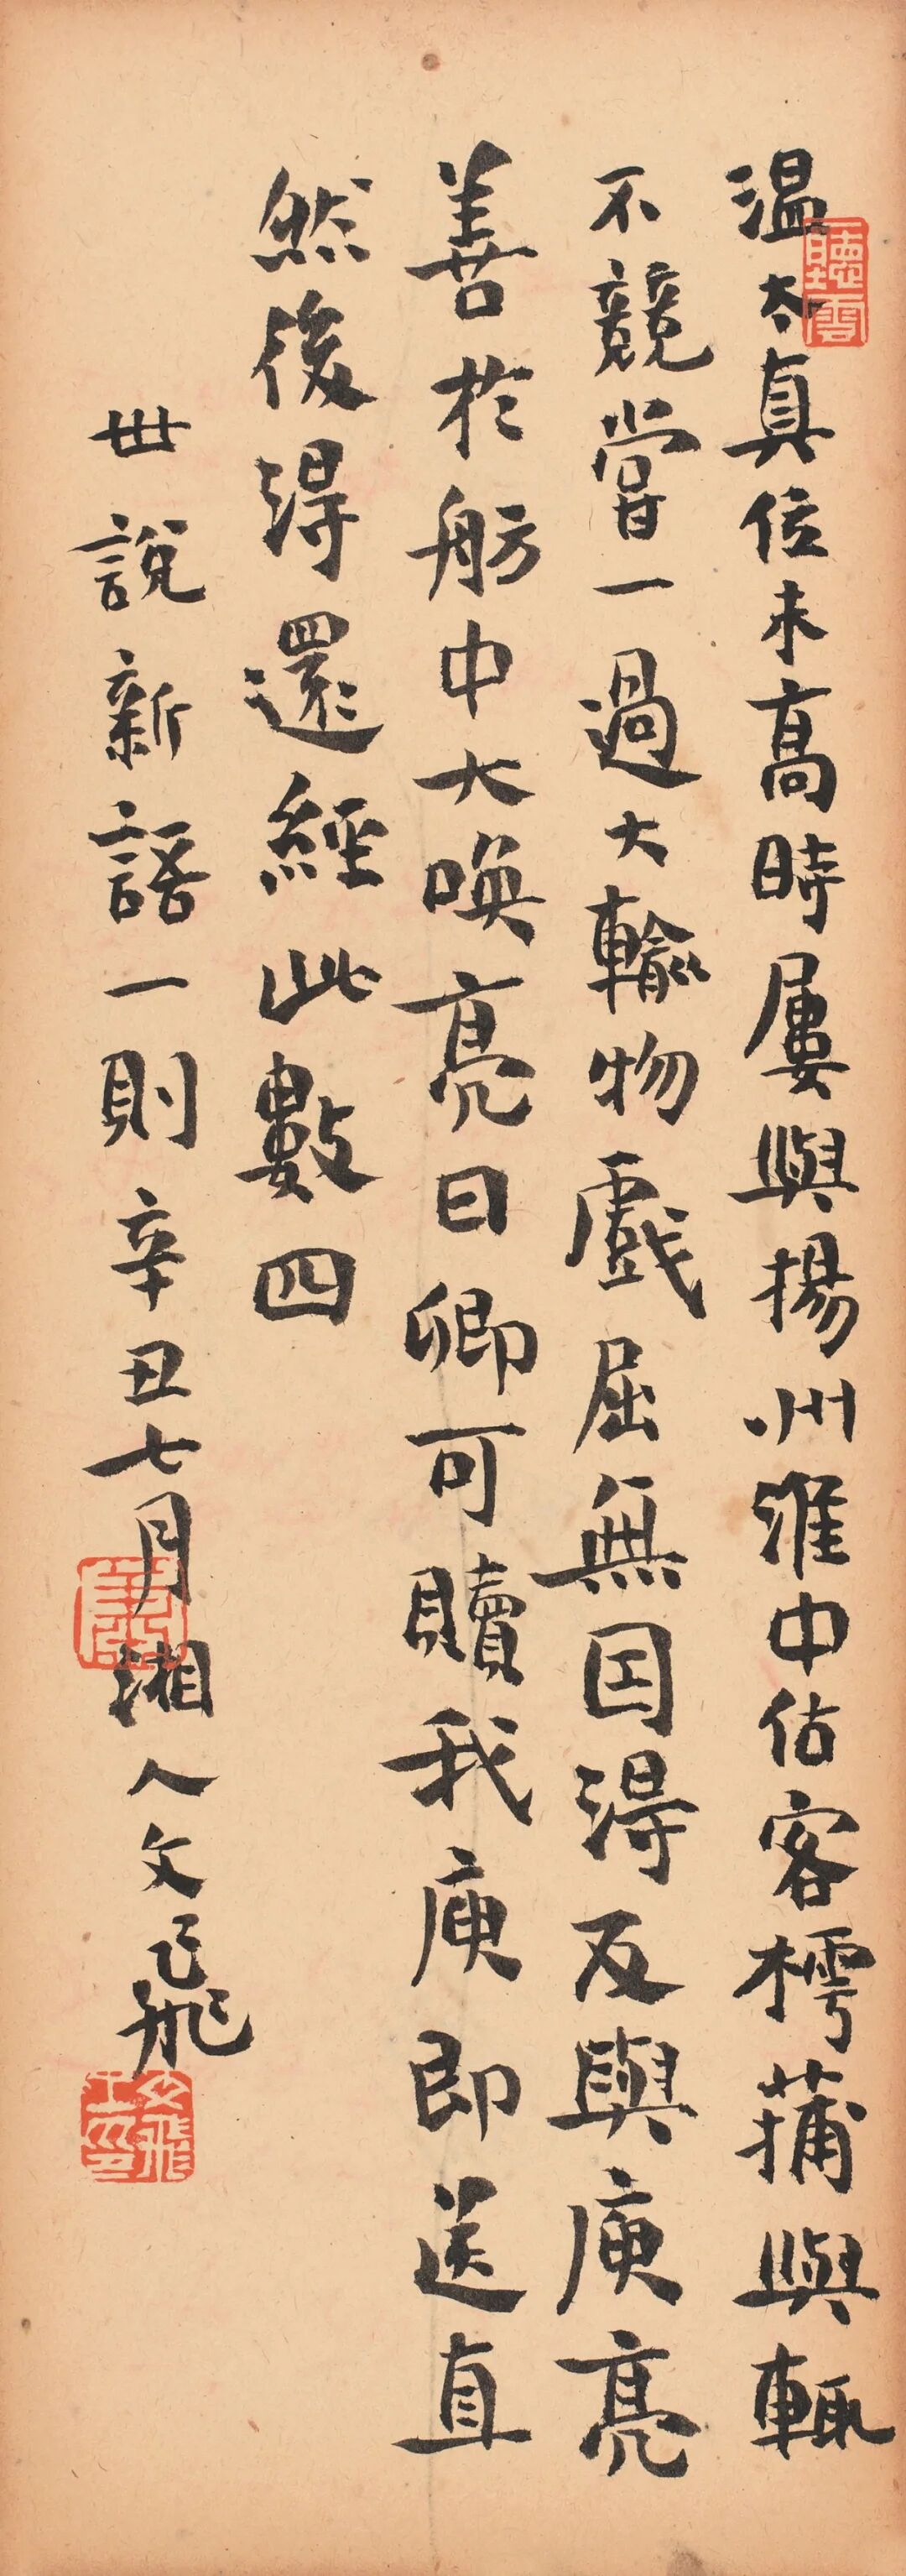 温太真位未高時屢與揚州淮中估客樗蒲與輒
不競嘗一過大輸物戲屈無因得反與庾亮
善於舫中大喚亮曰卿可贖我庾即送直
然後得還經此數四
世說新語一則辛丑七月湘人文飛
聽雲
文飛